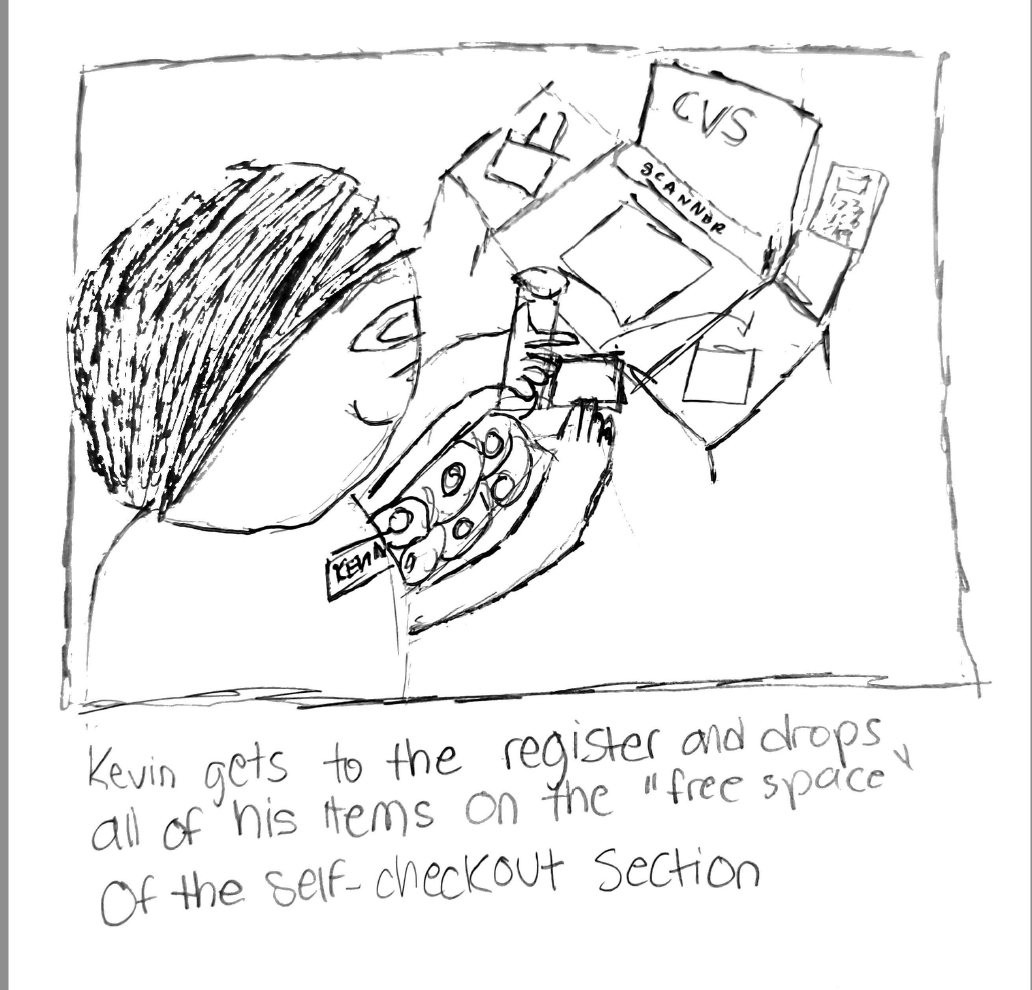 CVS
SCANNDR
KEVIN
Kevin gets to the register and drops
all of his items on the "free space"
Of the self-checkout section